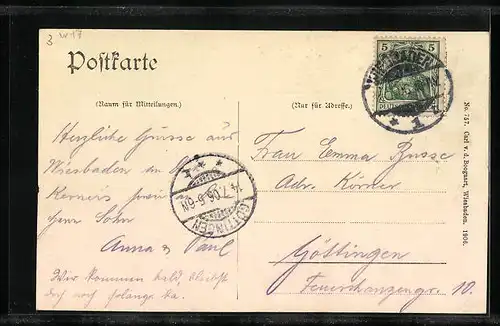 3 W17
Postkarte
(Raum für Mitteilungen.)
(Nur für Adresse.)
5 5
WIESBADEN
* 1
Herzliche Grüsse aus
Wiesbaden an
Körners
Ihren Sohn
Anna & Paul
Wir kommen bald, bleibst
doch noch solange da.
GÖTTINGEN
14.7.06.5-6N
Frau Emma Busse
Adr. Körner
Göttingen
Feuerschanzengr. 10.
No. 757. Carl v. d. Boogaart, Wiesbaden. 1906.